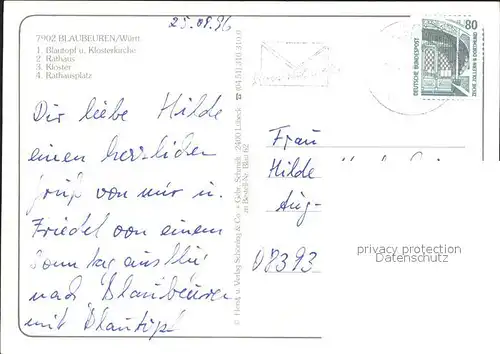 25.08.96
7902 BLAUBEUREN/Württ
1. Blautopf u. Klosterkirche
2. Rathaus
3. Kloster
4. Rathausplatz
Dir liebe Hilde
einen herzlichen
Gruß von mir u.
Friedel von einem
Sonntagausflu
nach Blaubeuren
mit Blautopf
© Horst u. Verlag Schöning & Co. + Gebr. Schmidt · 23400 Lübeck ☎ (0451) 310 310
Bestell-Nr. Blau 62
80
DEUTSCHE BUNDESPOST
Frau
Hilde
Aug-
08393
privacy protection
Datenschutz